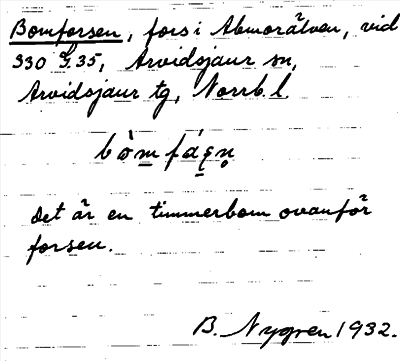 Bomforsen, fors i Abmorälven, vid
330 G 35, Arvidsjaur sn,
Arvidsjaur tg, Norrb. l.
bòm fáʂn̥
det är en timmerbom ovanför
forsen.
B. Nygren 1932.